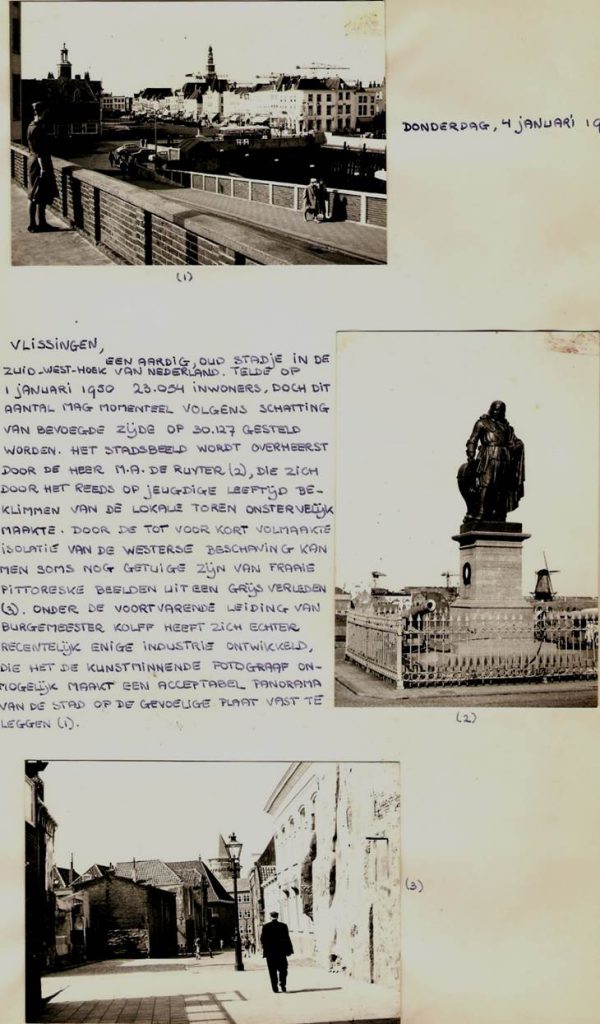 DONDERDAG, 4 JANUARI 19
(1)
VLISSINGEN,
EEN AARDIG, OUD STADJE IN DE
ZUID-WEST-HOEK VAN NEDERLAND. TELDE OP
1 JANUARI 1950 23.054 INWONERS, DOCH DIT
AANTAL MAG MOMENTEEL VOLGENS SCHATTING
VAN BEVOEGDE ZIJDE OP 30.127 GESTELD
WORDEN. HET STADSBEELD WORDT OVERHEERST
DOOR DE HEER M.A. DE RUYTER (2), DIE ZICH
DOOR HET REEDS OP JEUGDIGE LEEFTIJD BE-
KLIMMEN VAN DE LOKALE TOREN ONSTERVELIJK
MAAKTE. DOOR DE TOT VOOR KORT VOLMAAKTE
ISOLATIE VAN DE WESTERSE BESCHAVING KAN
MEN SOMS NOG GETUIGE ZIJN VAN FRAAIE
PITTORESKE BEELDEN UIT EEN GRIJS VERLEDEN
(3). ONDER DE VOORTVARENDE LEIDING VAN
BURGEMEESTER KOLFF HEEFT ZICH ECHTER
RECENTELIJK ENIGE INDUSTRIE ONTWIKKELD,
DIE HET DE KUNSTMINNENDE FOTOGRAAF ON-
MOGELIJK MAAKT EEN ACCEPTABEL PANORAMA
VAN DE STAD OP DE GEVOELIGE PLAAT VAST TE
LEGGEN (1).
(2)
(3)